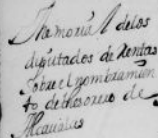 Memorial delos
diputados de Rentas
Sobre el nombramien
to de thesorero de
Alcavalas